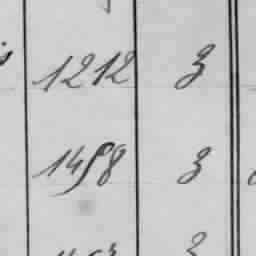 1212 3
1458 3